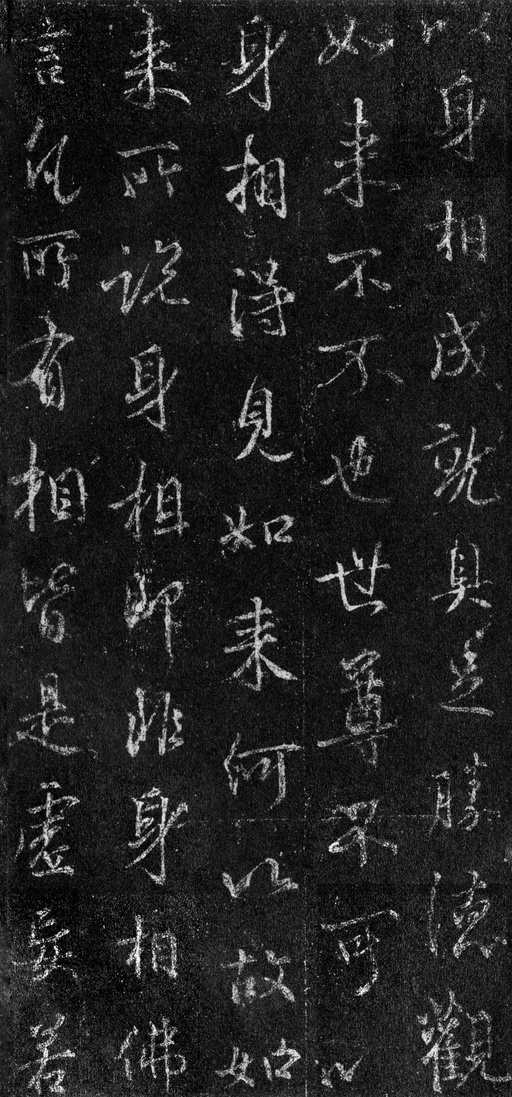 以身相成就具足勝德觀
如来不不也世尊不可以
身相得見如来何以故如
来所説身相即非身相佛
言凡所有相皆是虚妄若